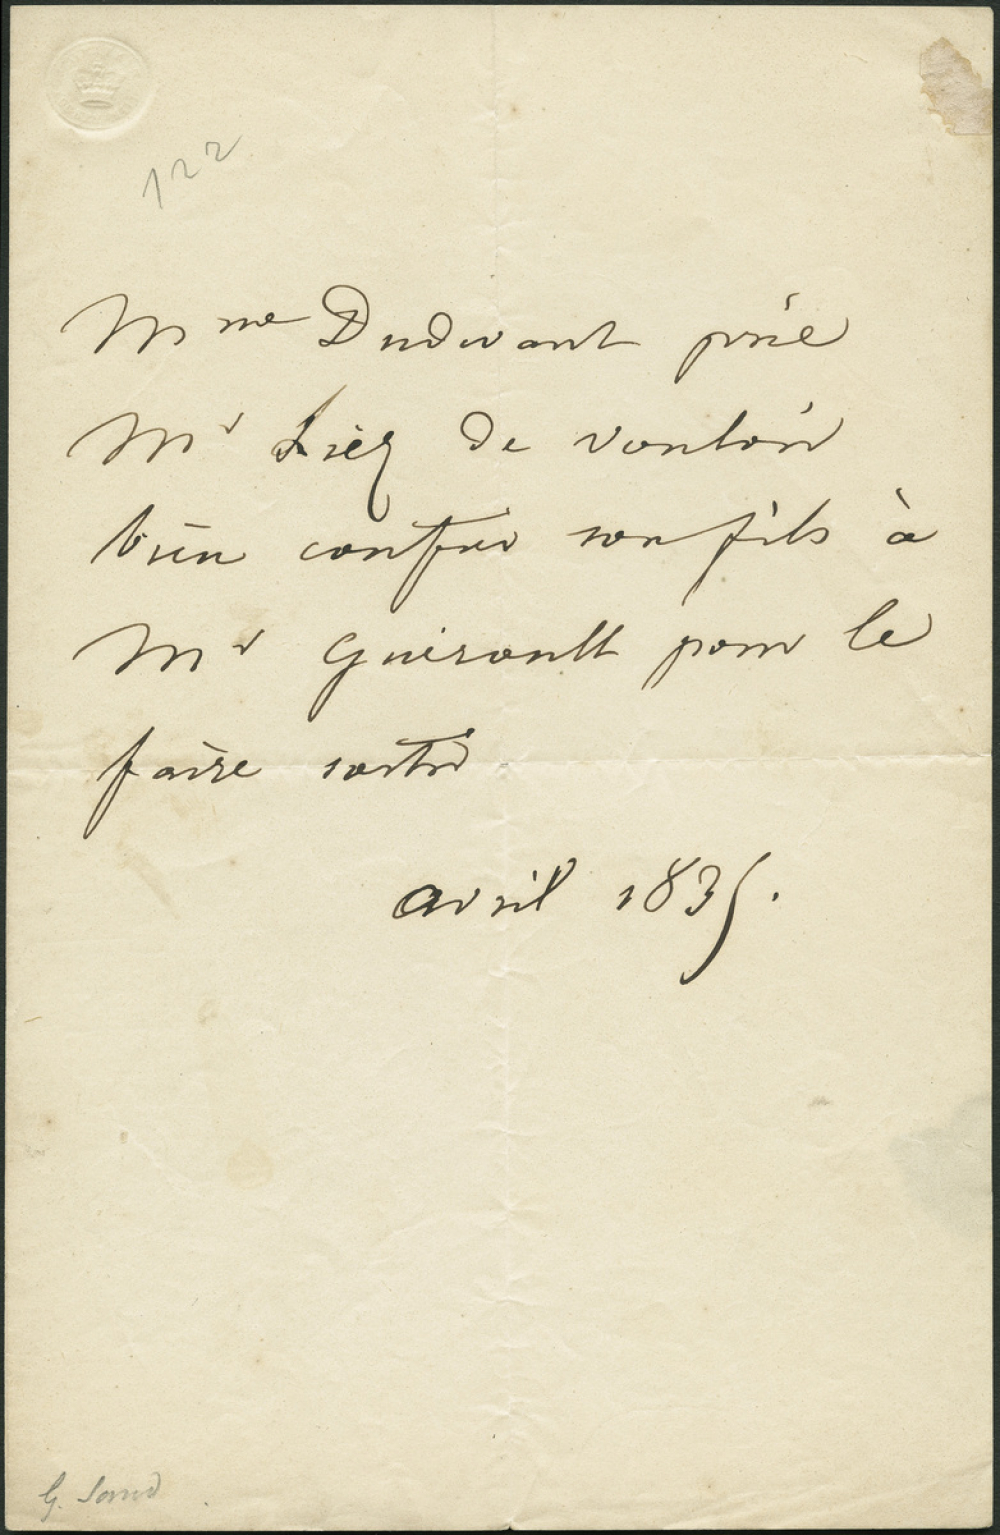 122
Mme Dudevant prie
Mr Liez de vouloir
bien confier son fils à
Mr Guéroult pour le
faire sortir
avril 1835.
G. Sand